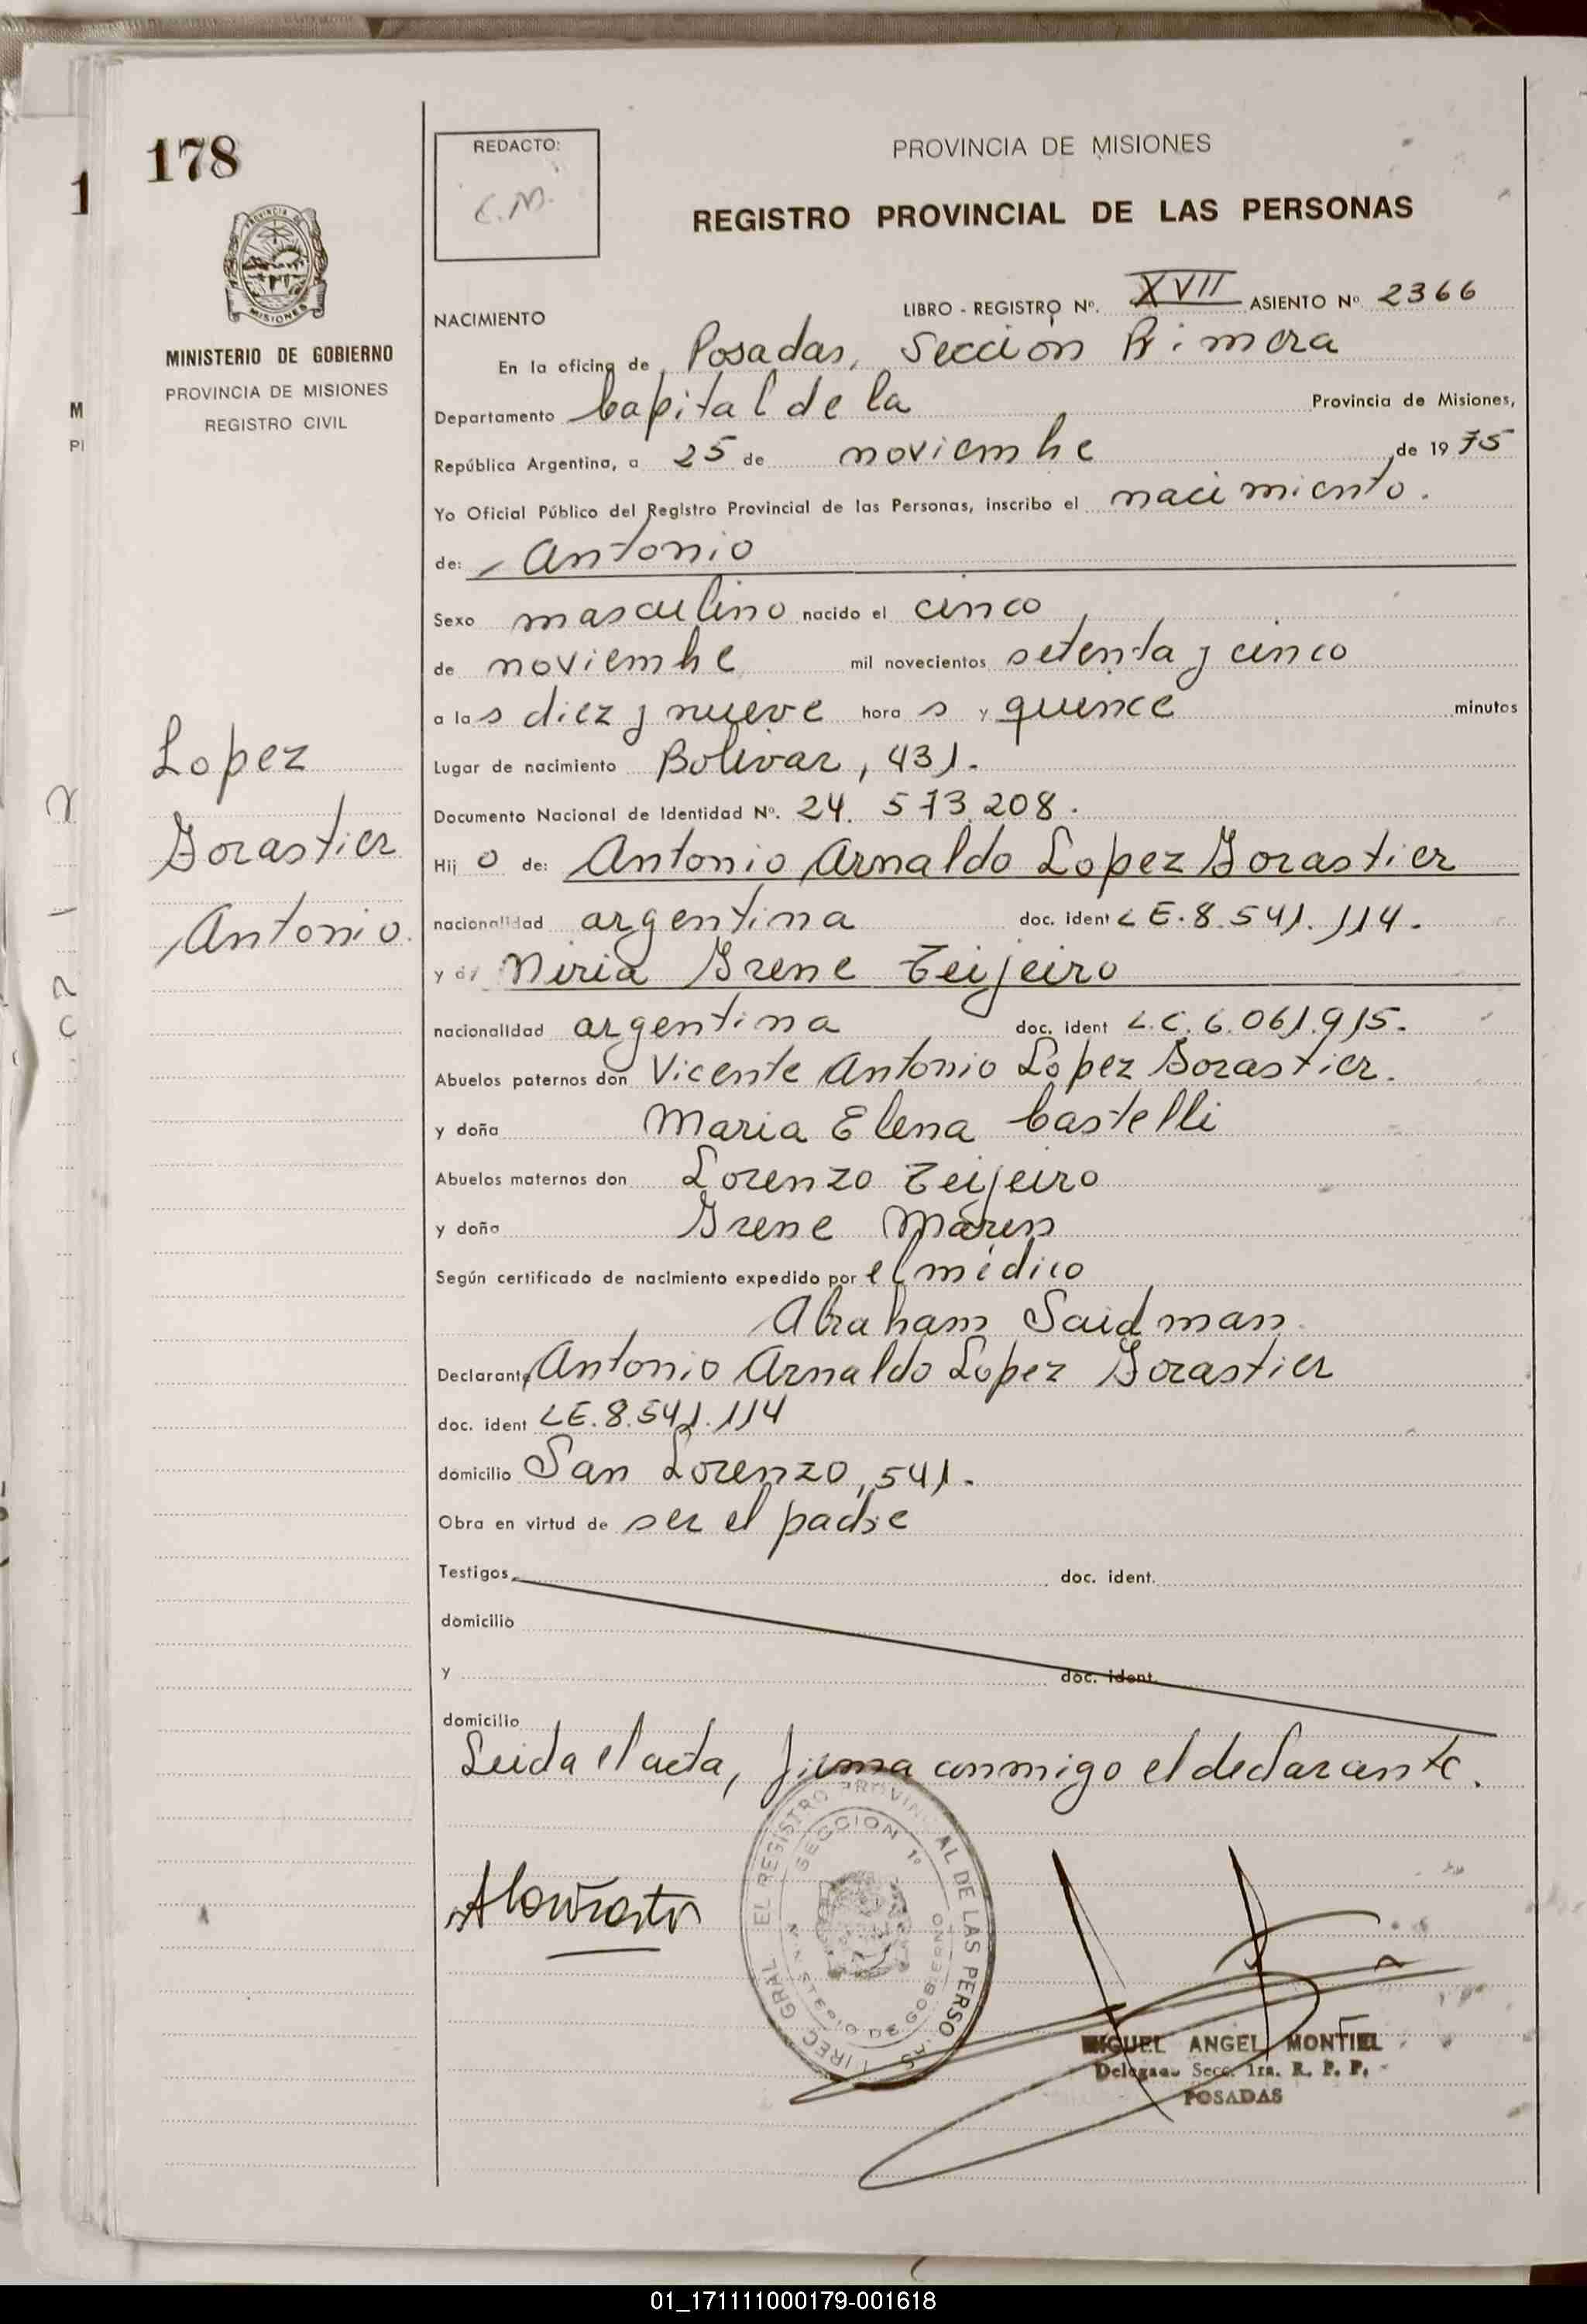 178
1
REDACTO:
C.M.
PROVINCIA DE MISIONES
REGISTRO PROVINCIAL DE LAS PERSONAS
PROVINCIA DE
MISIONES
MINISTERIO DE GOBIERNO
PROVINCIA DE MISIONES
REGISTRO CIVIL
M
PI
LIBRO - REGISTRO Nº. XVII ASIENTO Nº 2366
NACIMIENTO
En la oficina de Posadas, Sección Primera
Departamento Capital de la Provincia de Misiones,
República Argentina, a 25 de noviembre de 1975
Yo Oficial Público del Registro Provincial de las Personas, inscribo el nacimiento.
de: Antonio
Sexo masculino nacido el cinco
de noviembre mil novecientos setenta y cinco
a las diez y nueve horas y quince minutos
Lugar de nacimiento Bolivar, 431.
Documento Nacional de Identidad Nº. 24.573.208.
Hijo de: Antonio Arnaldo Lopez Forastier
nacionalidad argentina doc. ident LE.8.541.114.
y de Niria Irene Teijeiro
nacionalidad argentina doc. ident L.C.6.061.915.
Abuelos paternos don Vicente Antonio Lopez Forastier.
y doña Maria Elena Castelli
Abuelos maternos don Lorenzo Teijeiro
y doña Irene
Según certificado de nacimiento expedido por el médico
Abraham Saidman
Declarante Antonio Arnaldo Lopez Forastier
doc. ident LE.8.541.114
domicilio San Lorenzo, 541.
Obra en virtud de ser el padre
Testigos doc. ident.
domicilio
y doc. ident.
domicilio
Leida el acta, firma conmigo el declarante.
Lopez
Forastier
Antonio.
DIREC. GRAL. DEL REGISTRO PROVINCIAL DE LAS PERSONAS
SECCION 1º
MINISTERIO DE GOBIERNO
MIGUEL ANGEL MONTIEL
Delegado Secc. 1ra. R. P. P.
POSADAS
01_171111000179-001618